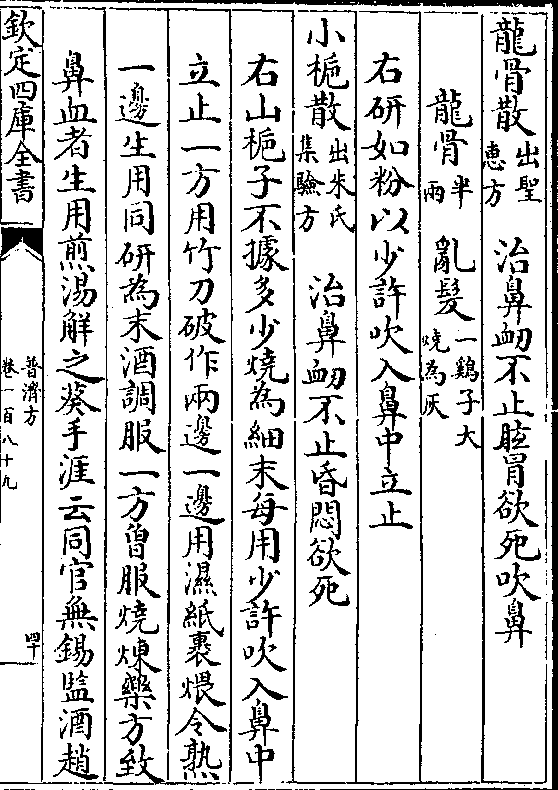 龍骨散出聖惠方　治鼻衄不止眩冒欲死吹鼻
龍骨半兩　亂髮一鷄子大燒為灰
右研如粉以少許吹入鼻中立止
小梔散出朱氏集驗方　治鼻衄不止昏悶欲死
右山梔子不據多少燒為細末每用少許吹入鼻中
立止一方用竹刀破作兩邊一邊用濕紙裹煨令熟
一邊生用同研為末酒調服一方曾服燒煉藥方致
鼻血者生用煎湯解之葵手涯云同官無錫監酒趙
欽定四庫全書
普濟方
卷一百八十九
四十